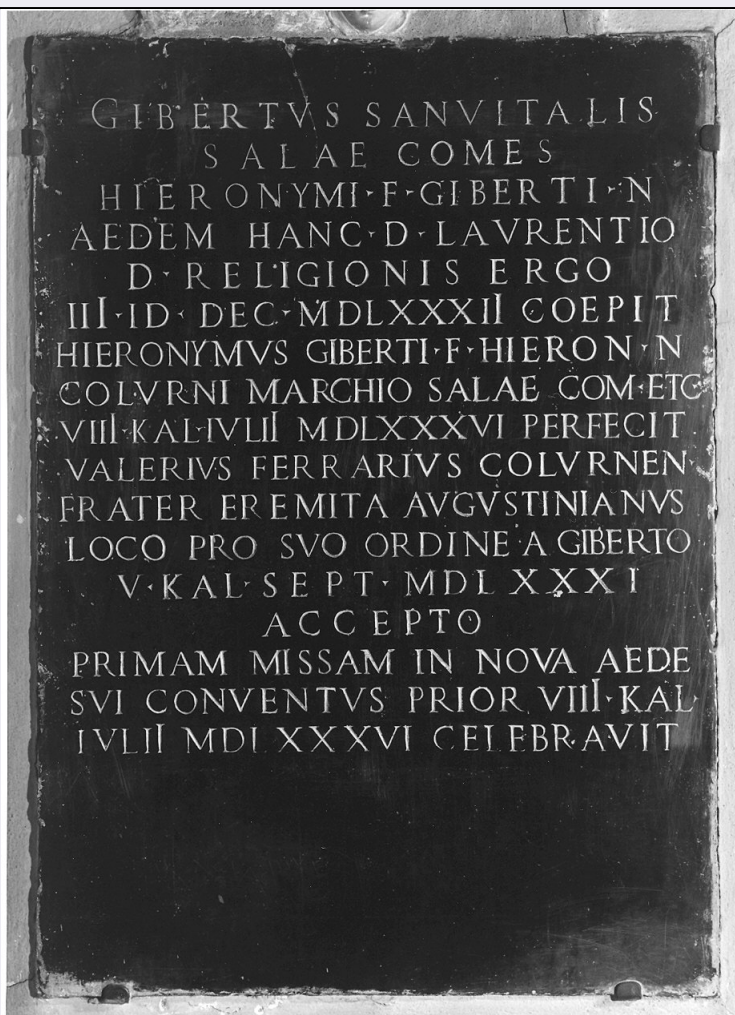 GIBERTVS SANVITALIS
SALAE COMES
HIERONYMI·F·GIBERTI·N
AEDEM HANC·D·LAVRENTIO
D·RELIGIONIS ERGO
IIII·ID·DEC·MDLXXXII COEPIT
HIERONYMVS GIBERTI·F·HIERON·N
COLVRNI MARCHIO SALAE COM·ETC
VIIII·KAL·IVLII MDLXXXVI PERFECIT
VALERIVS FERRARIVS COLVRNEN·
FRATER EREMITA AVGVSTINIANVS
LOCO PRO SVO ORDINE A GIBERTO
V·KAL·SEPT·MDLXXXI
ACCEPTO
PRIMAM MISSAM IN NOVA AEDE
SVI CONVENTVS PRIOR VIIII·KAL·
IVLII MDLXXXVI CELEBRAVIT